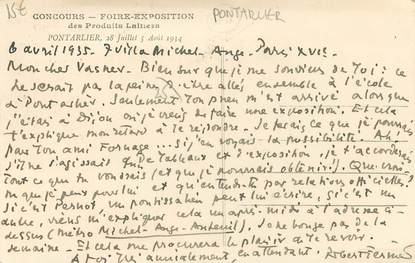 15€
PONTARLIER
CONCOURS — FOIRE-EXPOSITION
des Produits Laitiers
PONTARLIER, 28 Juillet 5 Août 1914
6 avril 1935. 7 Villa Michel-Ange - Paris XVIe
Mon cher Vasner - Bien sûr que je me souviens de toi : ce
ne serait pas la peine d'être allés ensemble à l'école
à Pontarlier. Seulement ton pneu m'est arrivé alors que
j'étais à Dijon où je viens de faire une exposition. Et cela
t'explique mon retard à te répondre. Je ferais ce que je pourrai
pour ton ami si j'en voyais la possibilité. Ah !
s'il ne s'agissait que de tableaux et d'exposition, je t'accorderais
tout ce que tu voudrais (et que je pourrais obtenir).
que je peux pour lui et qu'entends-tu par relations officielles ?
si c'est Pernot, un pontissalien peut lui écrire, si c'est un
autre, viens m'expliquer cela un après-midi à l'adresse ci-
dessus (métro Michel-Ange-Auteuil). Je ne bouge pas de la
semaine. Et cela me procurera le plaisir de te revoir.
A toi très amicalement, en attendant. Robert Fernier